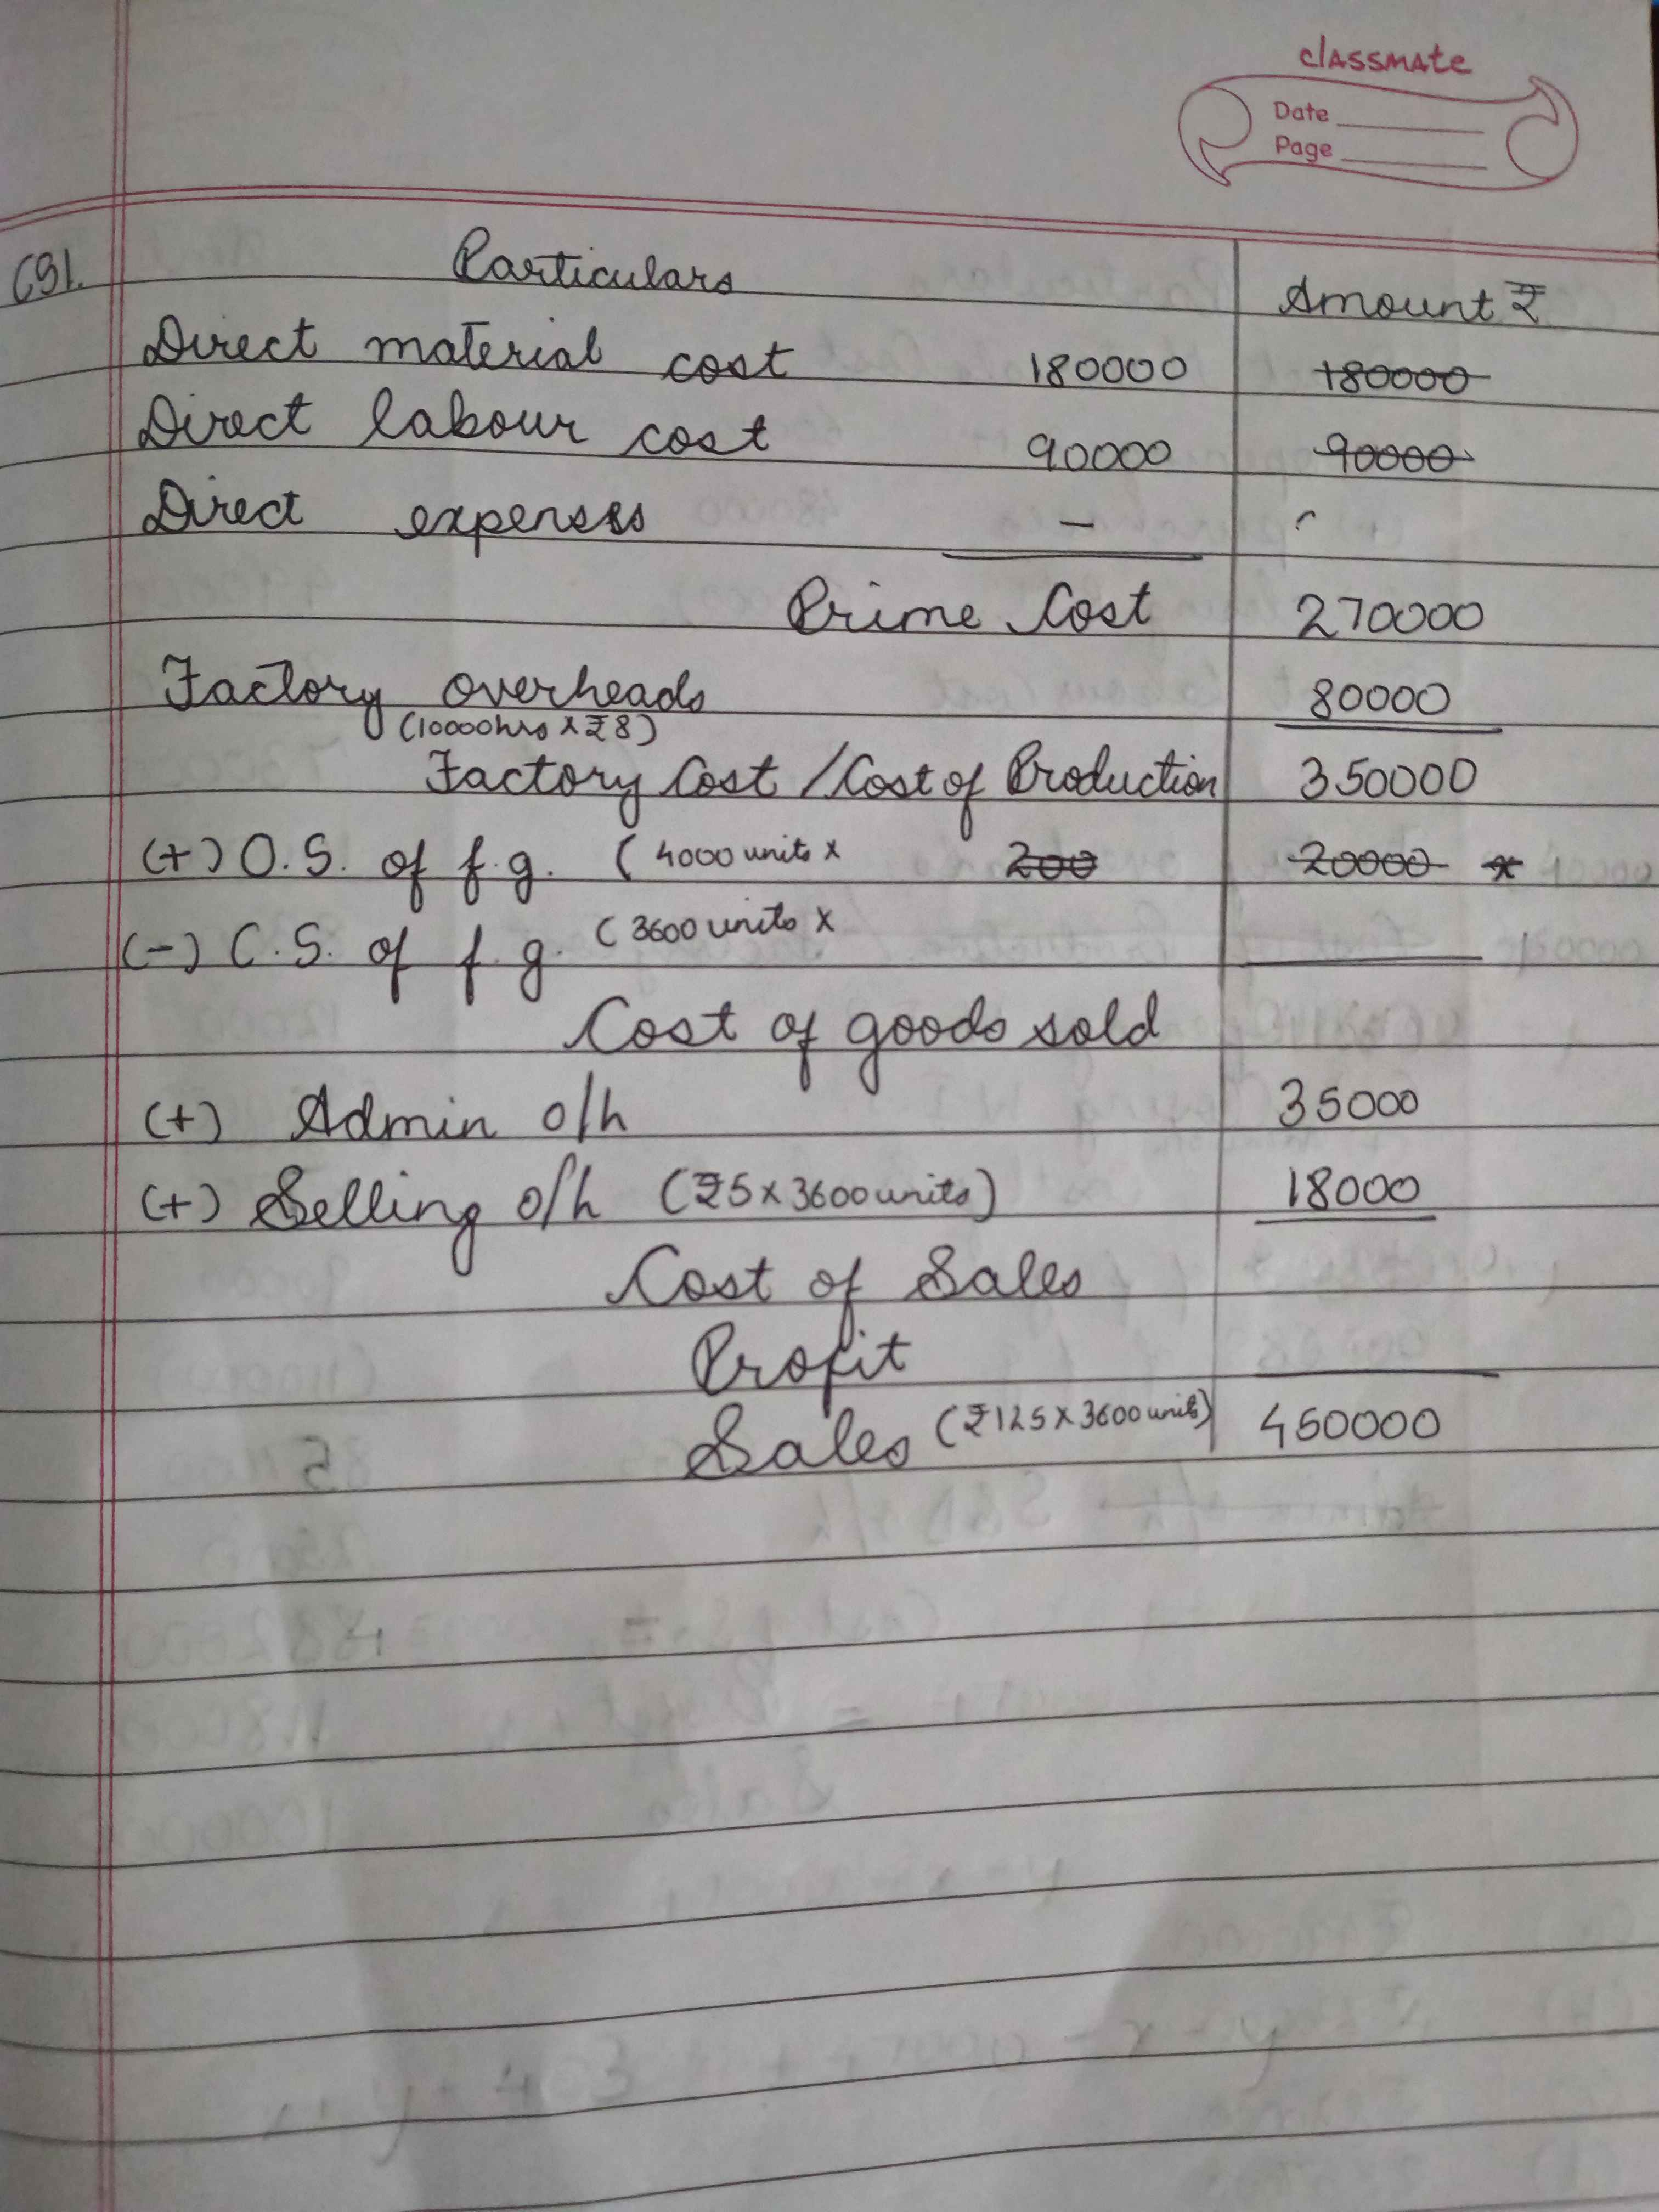 classmate
Date
Page
Particulars
Amount ₹
Direct material cost 180000 180000
Direct labour cost 90000 90000
Direct expenses -
Prime Cost 270000
Factory overheads 80000
(10000hrs x ₹8)
Factory Cost / Cost of Production 350000
(+) O.S. of f.g. (4000 units x 200 20000
(-) C.S. of f.g. (3600 units x
Cost of goods sold
(+) Admin o/h 35000
(+) Selling o/h (₹5 x 3600 units) 18000
Cost of Sales
Profit
Sales (₹125 x 3600 units) 450000